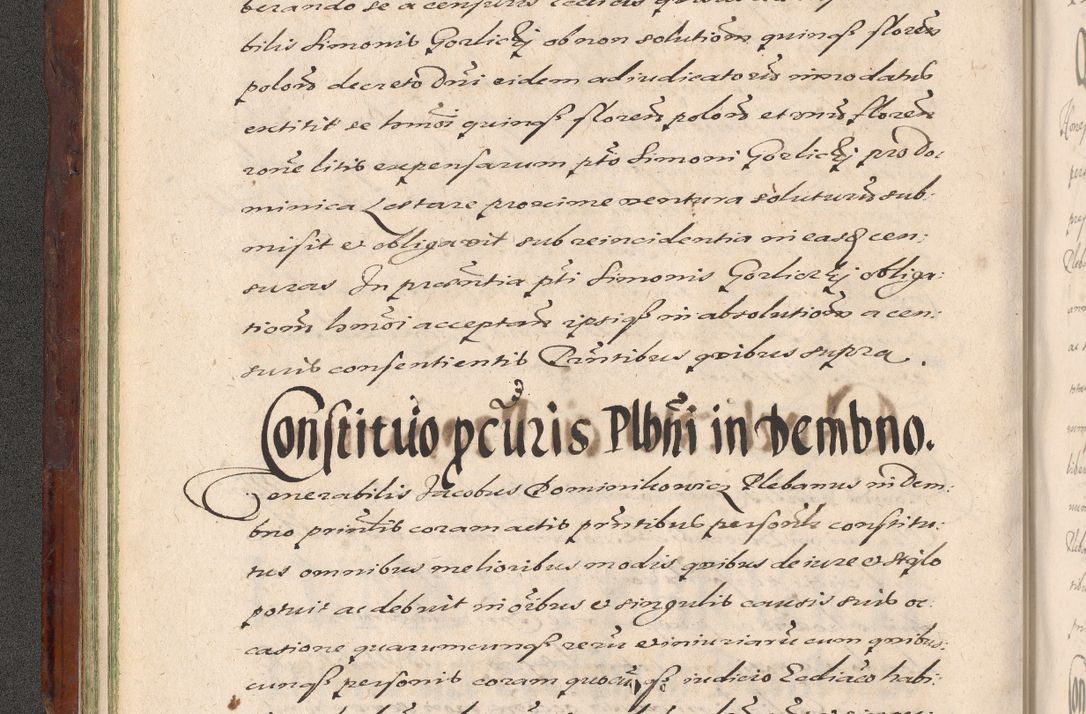 bilis Simonis Gorlickj ob non solutiom quinqȝ floren
polon decreto Dni eidem adiudicatorū innodatus
extitit se hmoi quinqȝ floren polon et vnū floren
rone litis expensarum pto Simoni Gorlickj pro Do:
minica Lætare proxime ventura soluturū sub:
misit et obligavit sub reincidentia in easd cen:
suras In præntia pti Simonis Gorlickj obliga:
tiom hmoi acceptan ipsiqȝ in absolutiom a cen:
suris consentientis Præntibus quibus supra.
Constitūo pcūris Plbni in Dembno.
Venerabilis Jacobus Dominikowicz Plebanus in Dem:
bno printis coram actis prntibus personlr constitu:
tus omnibus melioribus modis quibus de iure et stylo
potuit ac debuit in oibus et singulis causis suis oc:
casione quarumcunqȝ rerū et iniuriarū cum quibus:
cunqȝ personis coram quocunqȝ iudicio Ecclīaco habi: